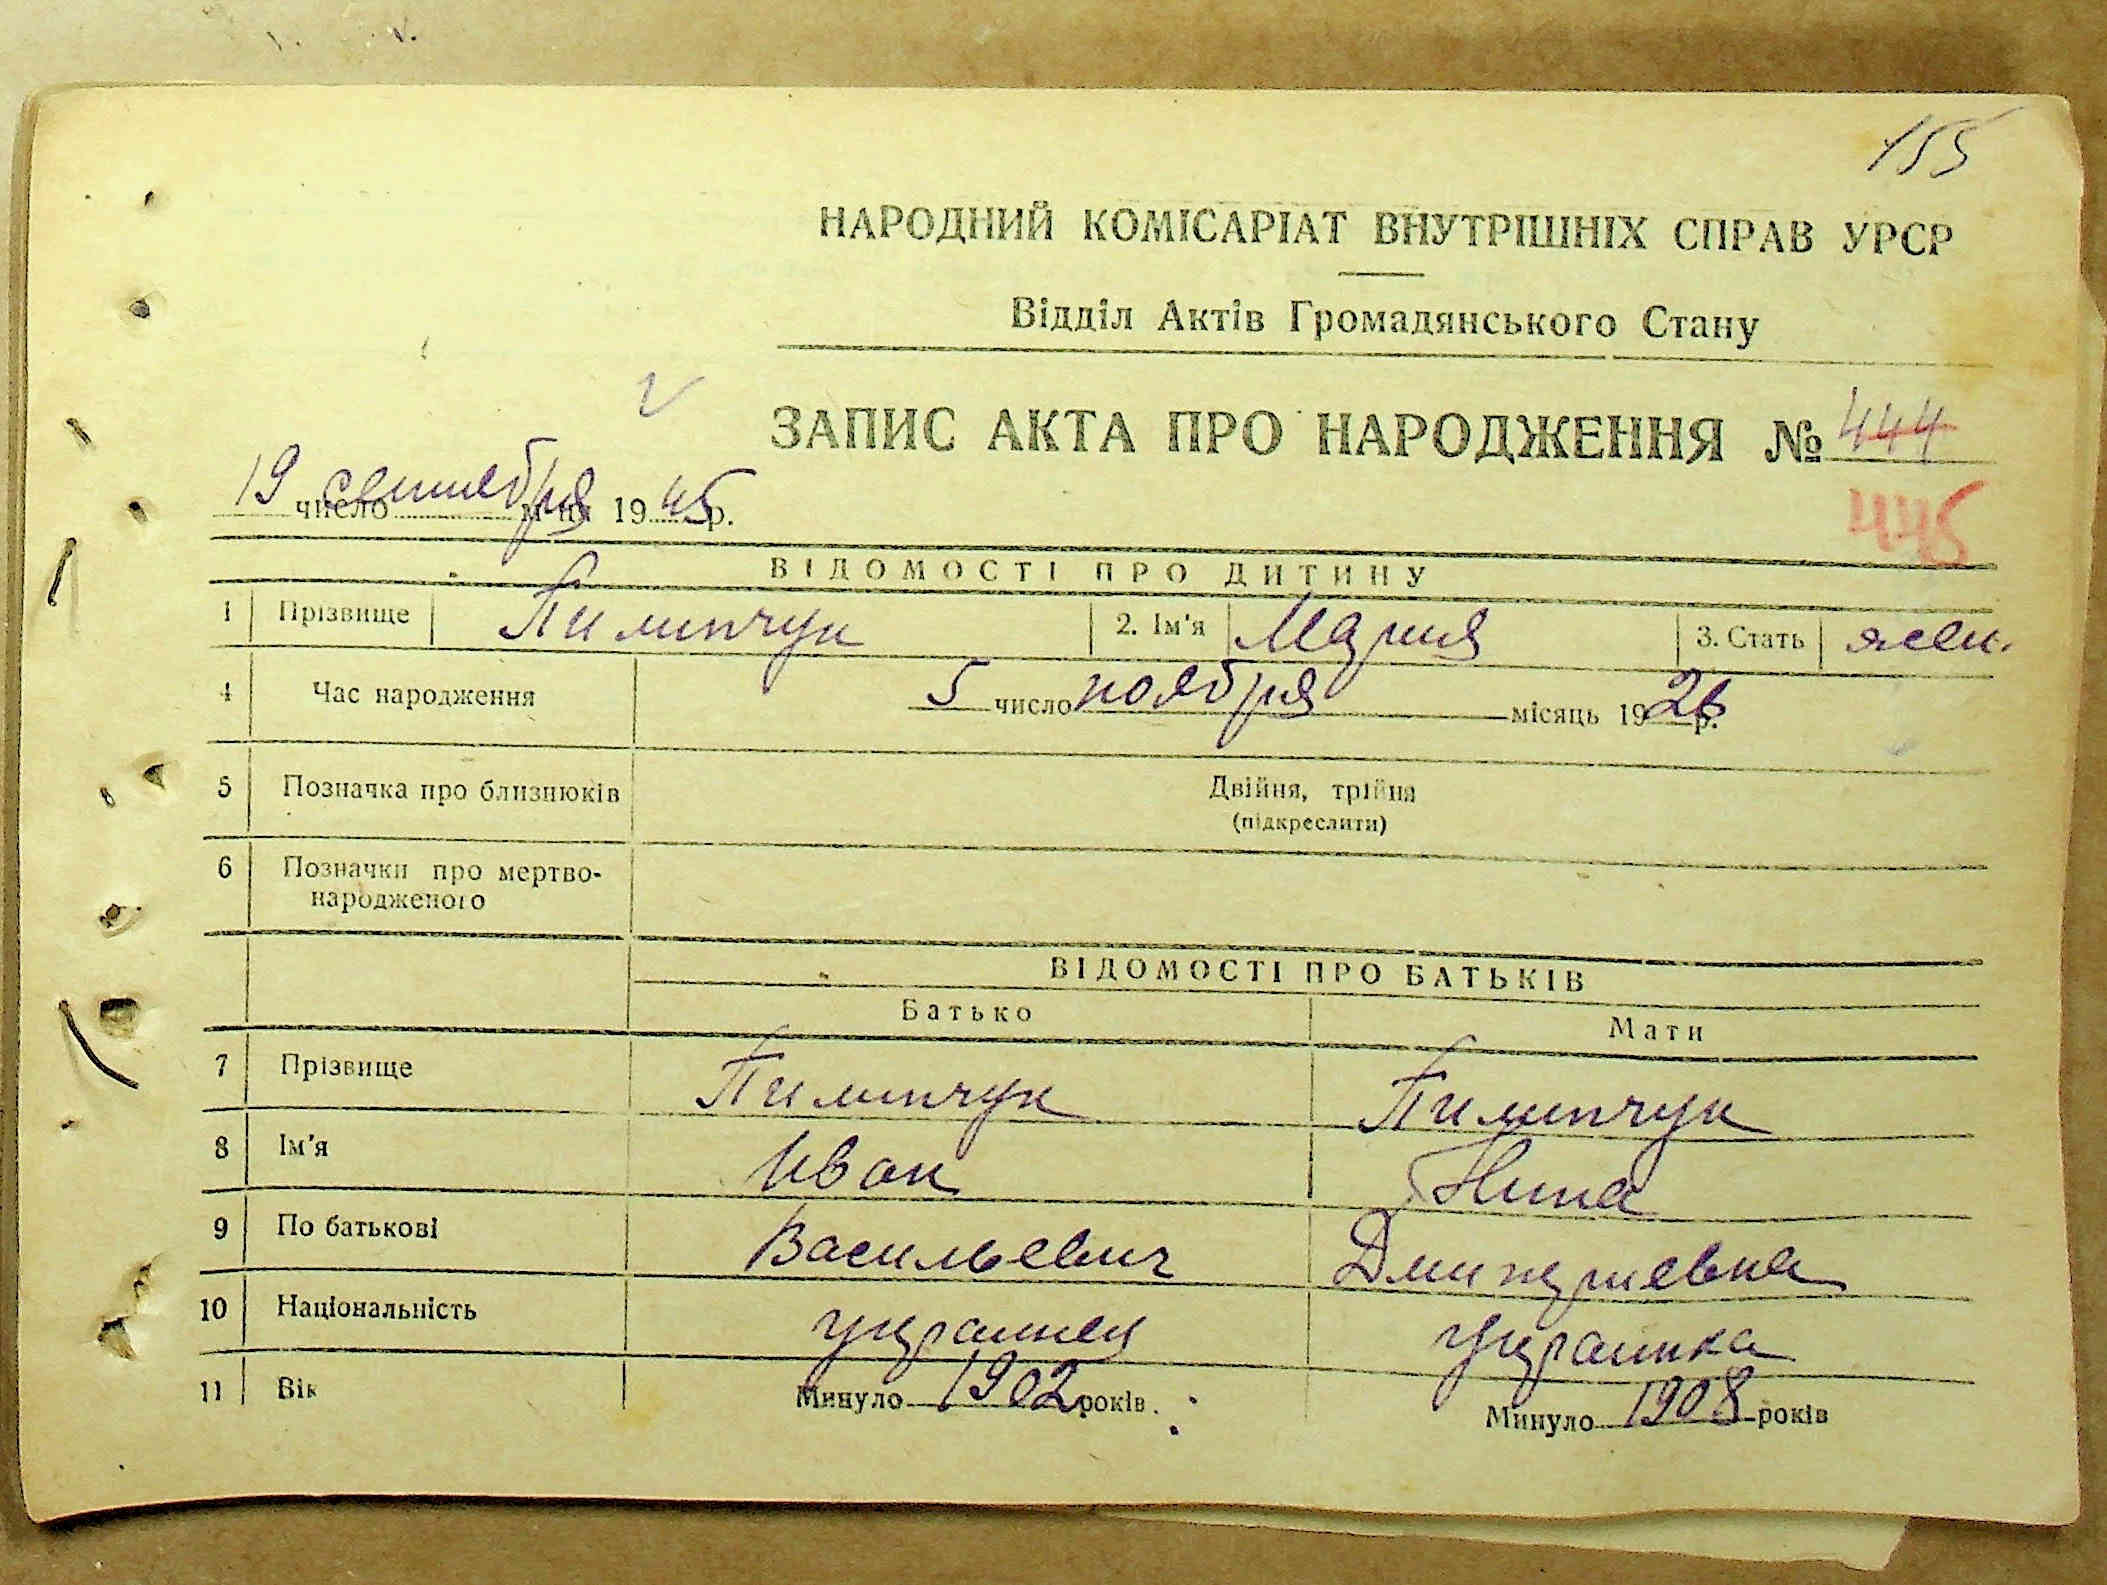 155
НАРОДНИЙ КОМІСАРІАТ ВНУТРІШНІХ СПРАВ УРСР
Відділ Актів Громадянського Стану
ЗАПИС АКТА ПРО НАРОДЖЕННЯ № 444
445
19 число сентября м-ця 1945 р.
ВІДОМОСТІ ПРО ДИТИНУ
1 Прізвище Пилипчук 2. Ім'я Мария 3. Стать жен.
4 Час народження 5 число ноября місяць 1926 р.
5 Позначка про близнюків Двійня, трійня
(підкреслити)
6 Позначки про мертво-
народженого
ВІДОМОСТІ ПРО БАТЬКІВ
Батько Мати
7 Прізвище Пилипчук Пилипчук
8 Ім'я Иван Нина
9 По батькові Васильевич Дмитриевна
10 Національність украинец украинка
11 Вік Минуло 1902 років. Минуло 1908 років